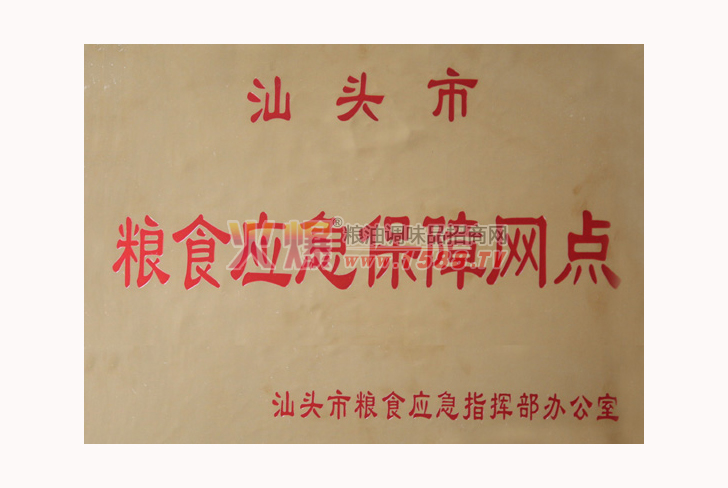 汕头市
粮食应急保障网点
火爆®粮油调味品招商网
www.1588.TV
汕头市粮食应急指挥部办公室